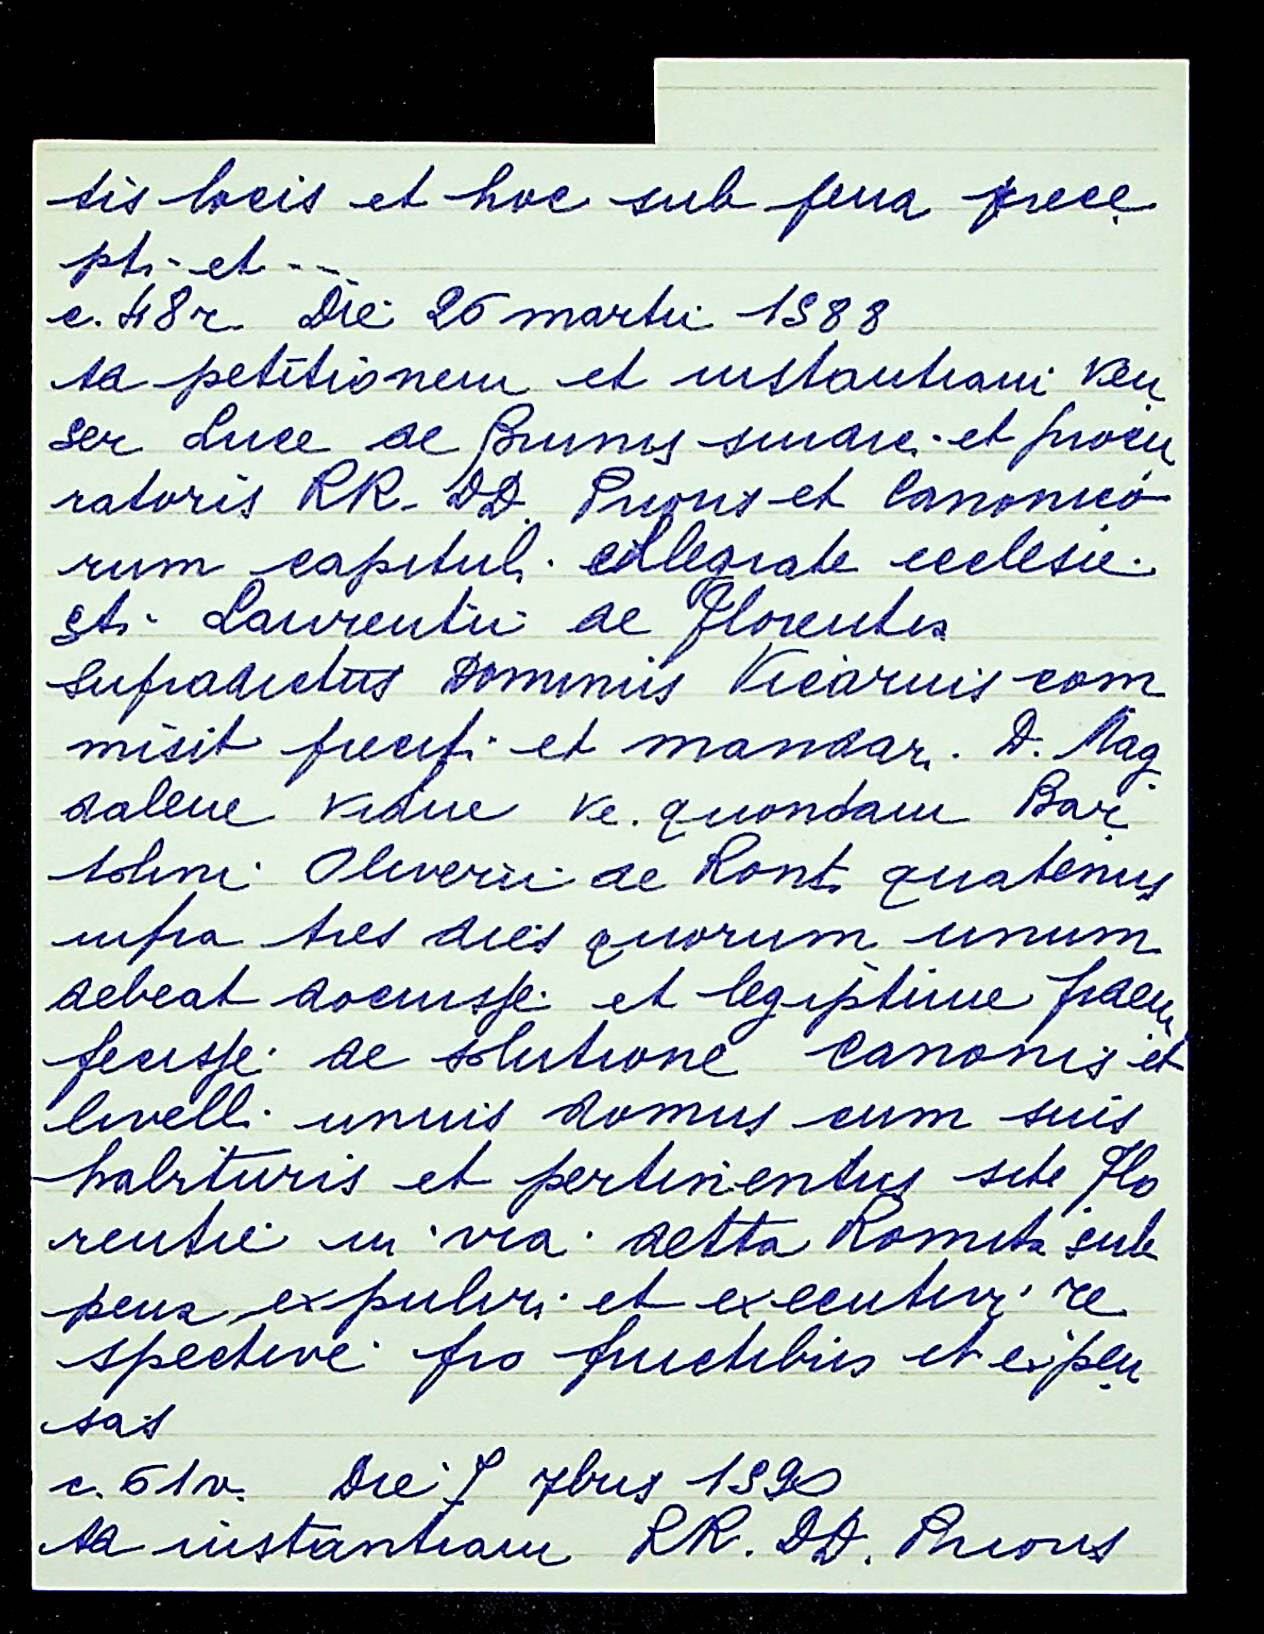 tis locis et hoc sub pena prece
pti et ---
c. 48r. Die 26 martii 1588
Ad petitionem et instantiam Ven
ser Luce de Brunis sindic. et procu
ratoris RR. DD. Prioris et Canonico
rum capituli. collegiate ecclesie.
sti. Laurentii de Florentia
supradictus Dominus Vicarius com
misit precipi et mandari. D. Mag
dalene vidue ve. quondam Bar
tolini Oliverii de Ront. quatenus
infra tres dies quorum unum
debeat docuisse et legiptime fidem
fecisse de solutione Canonis et
livelli unius domus cum suis
habituris et pertinentiis site Flo
rentie in via detta Romita sub
pena expulsi. et executivi re
spective pro fructibus et expen
sas
c. 61v. Die 7 7bris 1590
Ad instantiam RR. DD. Prioris